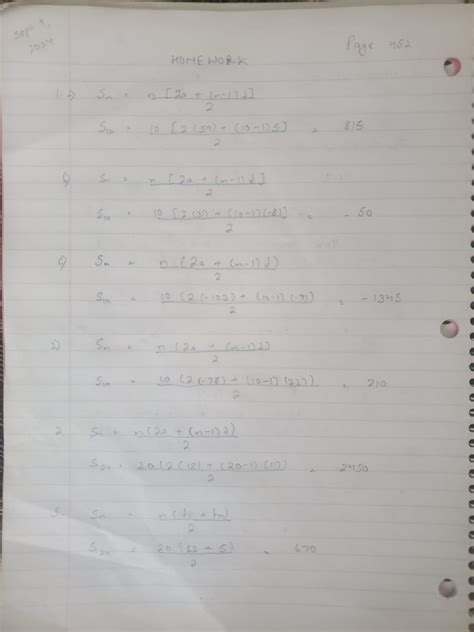 Sept 9, 2024
Page 452
HOMEWORK
1. a) Sn = n [2a + (n-1)d] / 2
S10 = 10 [2(59) + (10-1)5] / 2 = 815
b) Sn = n [2a + (n-1)d] / 2
S10 = 10 [2(31) + (10-1)(-8)] / 2 = -50
c) Sn = n (2a + (n-1)d) / 2
10 (2(-103) + (n-1)(-7)) / 2 = -1345
Sn = n (2a + (n-1)d) / 2
= 210
2. Sn = n (2a + (n-1)d) / 2
S20 = 20 (2(18) + (20-1)(11)) / 2 = 2450
3. Sn = n (t1 + tn) / 2
S20 = 20 (62 + 5) / 2 = 670